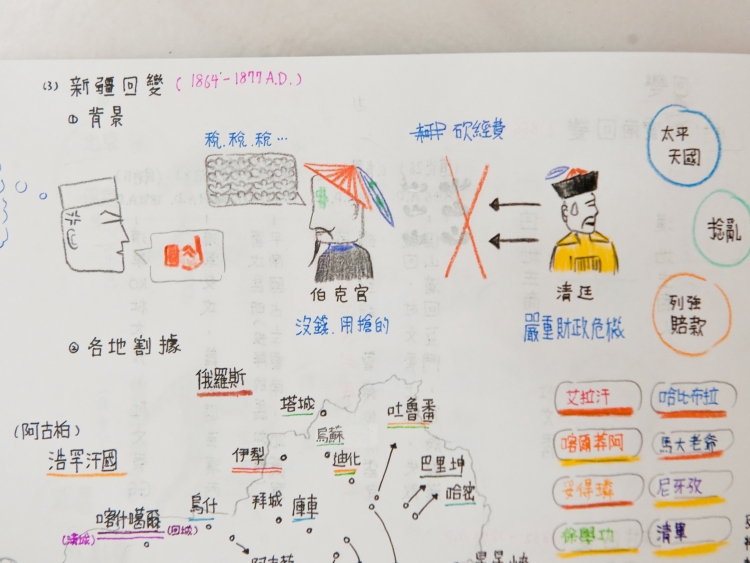 (3) 新疆回變 (1864-1877 A.D.)
① 背景
稅.稅.稅…
砍經費
太平
天國
捻亂
列強
賠款
伯克官
沒錢.用搶的
清廷
嚴重財政危機
② 各地割據
俄羅斯
塔城
吐魯番
烏蘇
(阿古柏)
浩罕汗國
伊犁
迪化
巴里坤
哈密
拜城
庫車
烏什
喀什噶爾
(漢城)
(回城)
艾拉汗
哈比布拉
喀爾莽阿
馬大老爺
妥得璘
尼牙孜
徐學功
清軍